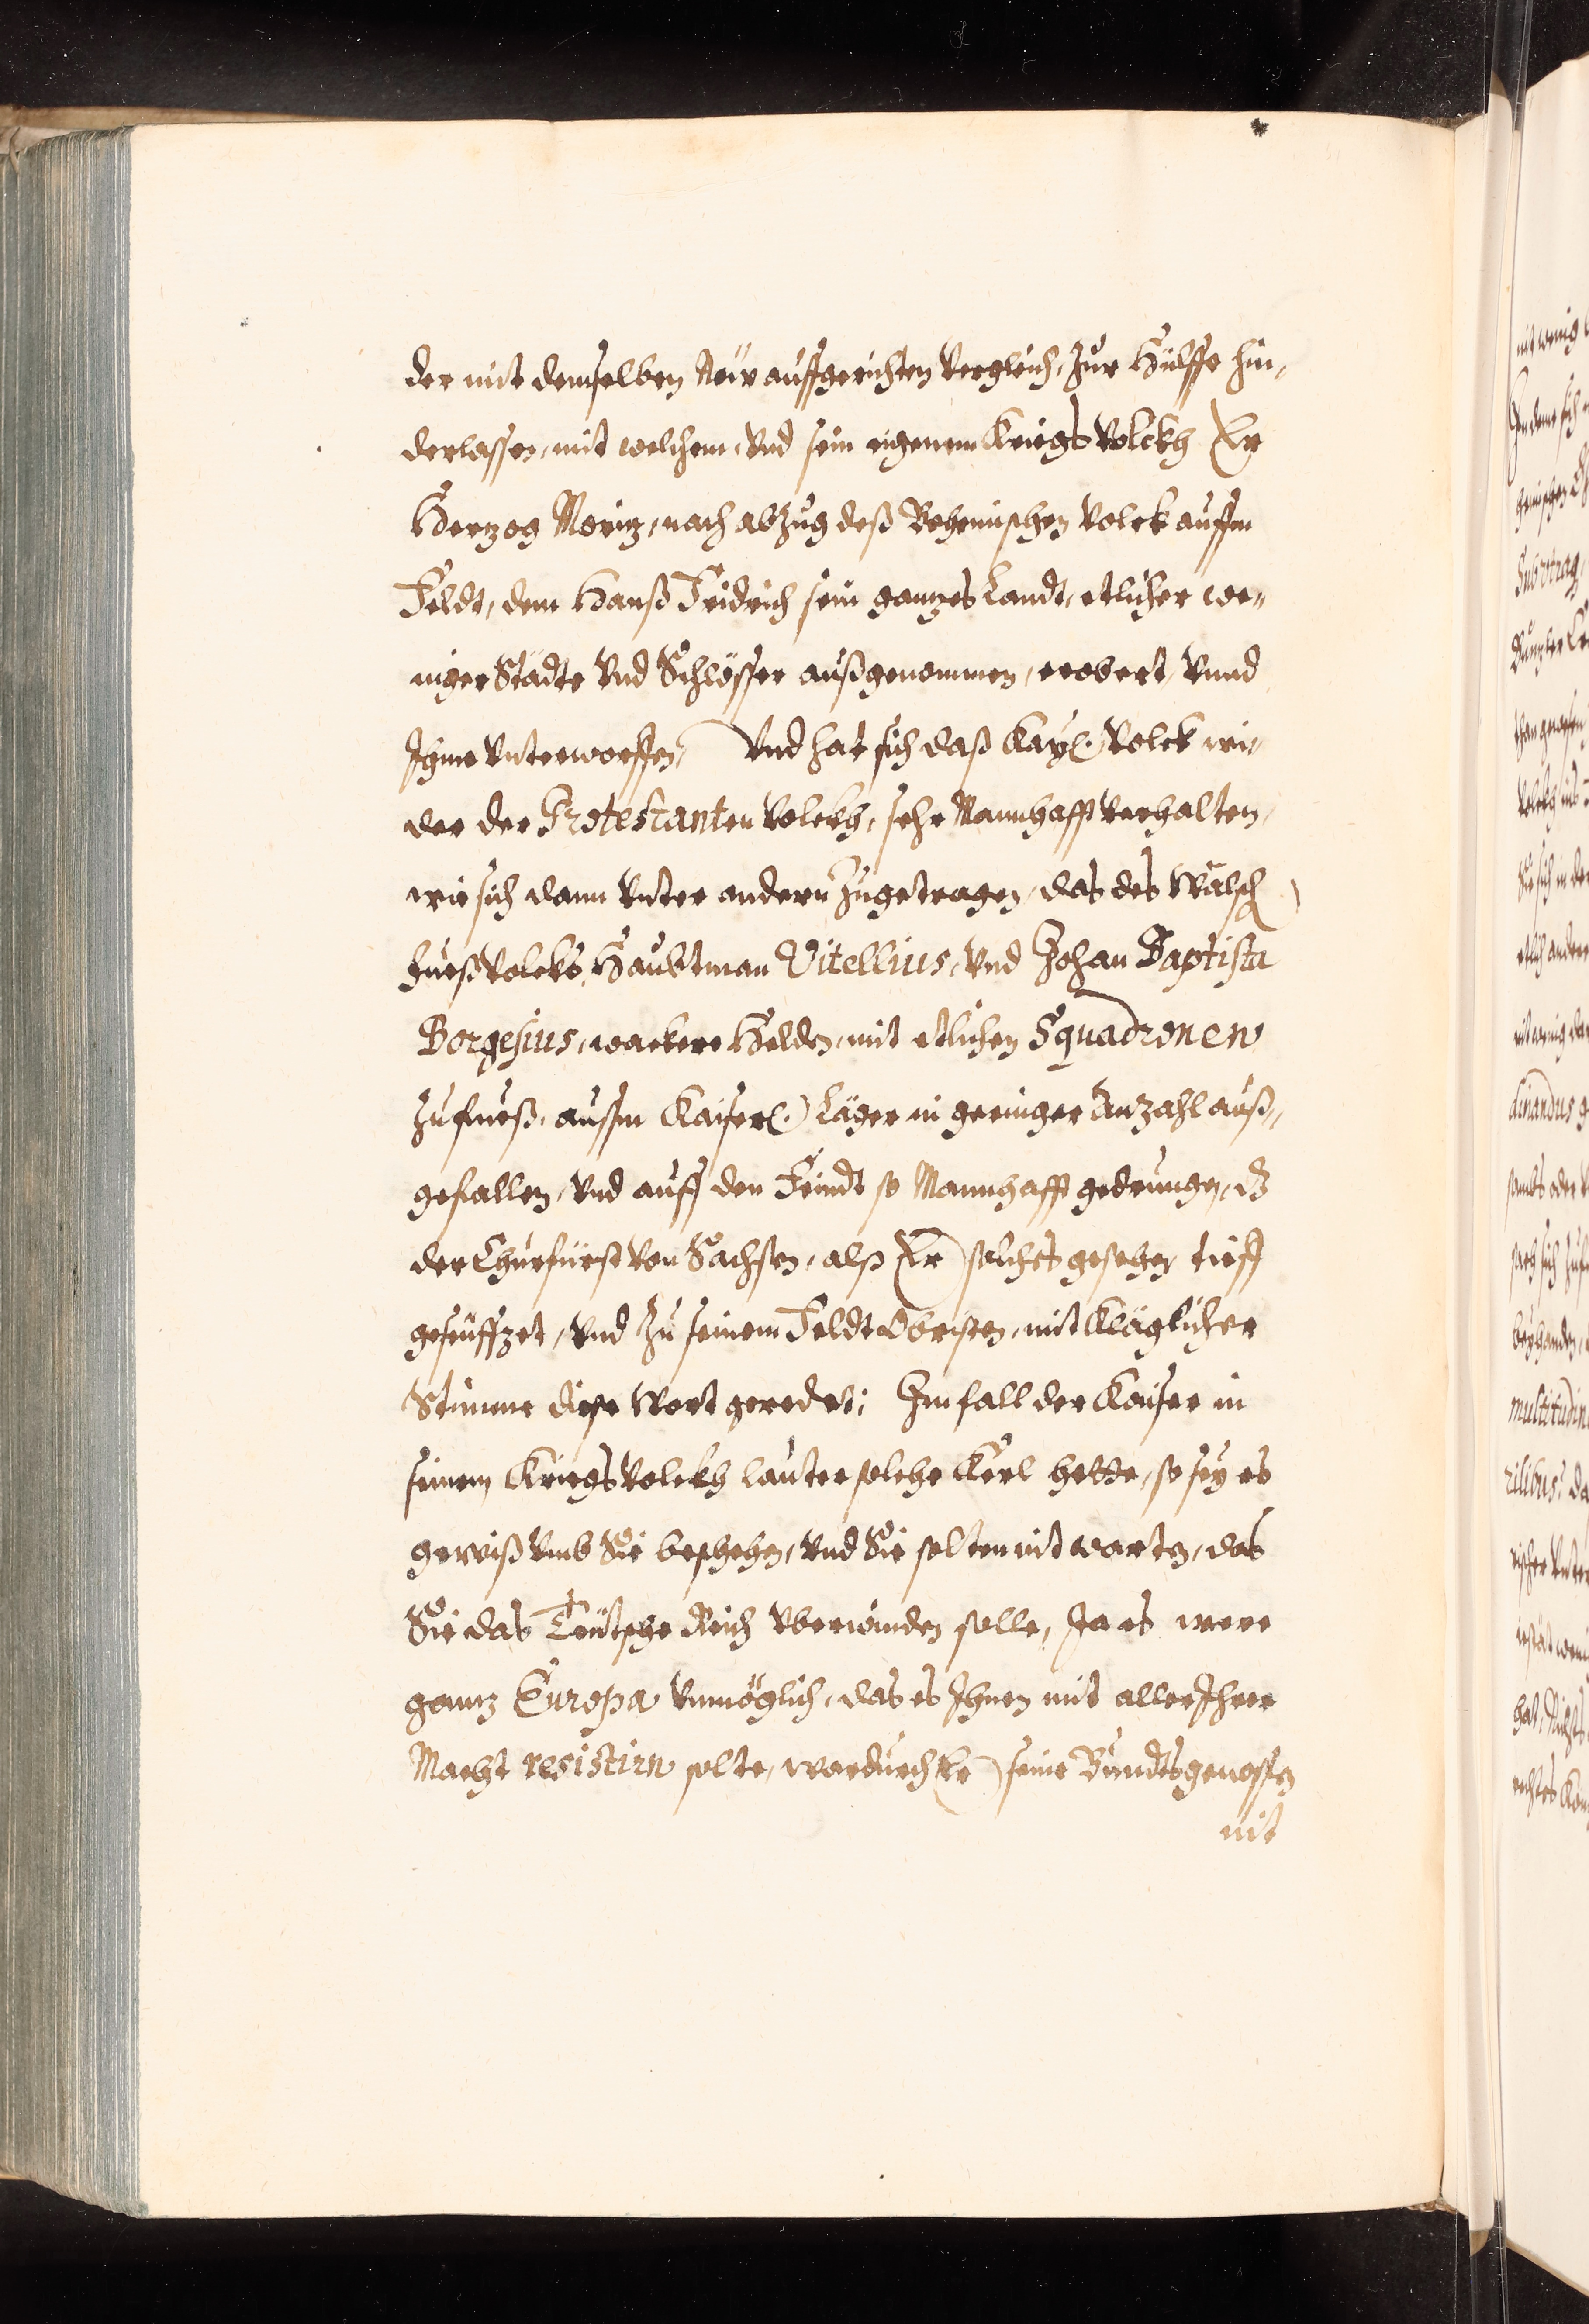 der mit demselben New auffgerichten Vergleich, Zur Hülffe hin„
derlassen, mit welchem, Vnd sein eigenem Kriegs Volckh Er
Hertzog Moritz, nach abzug deß Behemischen Volck auffm
Feldt, dem Hanß Fridrich sein gantzes Landt, etlicher we„
niger Städte Vnd Schlösser außgenommen, erobert Vnnd
Ihme Vnterworffen, Vnd hat sich daß Kayl. Volck wi„
der der Protestanten Volckh, sehr Mannhafft Verhalten,
wie sich dann Vnter andern Zugetragen, das des Wälsch
fueß Volcks Haubtman Vitellius, Vnd Johan Baptista
Borgesius, wackere Helden, mit etlichen Squadronen
Zu fueß, aussm Kaiserl. Läger in geringer Anzahl auß„
gefallen, Vnd auff den Feindt so Mannhafft gedrungen, dz
der Churfürst Von Sachsen, alß Er solches gesehen tieff
geseuffzet, Vnd Zu seinem Feldt Obristen, mit Kläglicher
Stimme diese Wort geredet; Im fall der Kaiser in
seinem Kriegs Volckh lauter solche Kerl hette, so sey es
gewiß Vmb Sie beschehen, Vnd Sie solten nit warten, das
Sie das Teütsche Reich Vberwinden solle, Ja es were
gantz Europa Vnmöglich, das es Ihnen mit aller Ihrer
Macht resistirn solte, wardurch Er seine Bundtsgenossen
nit